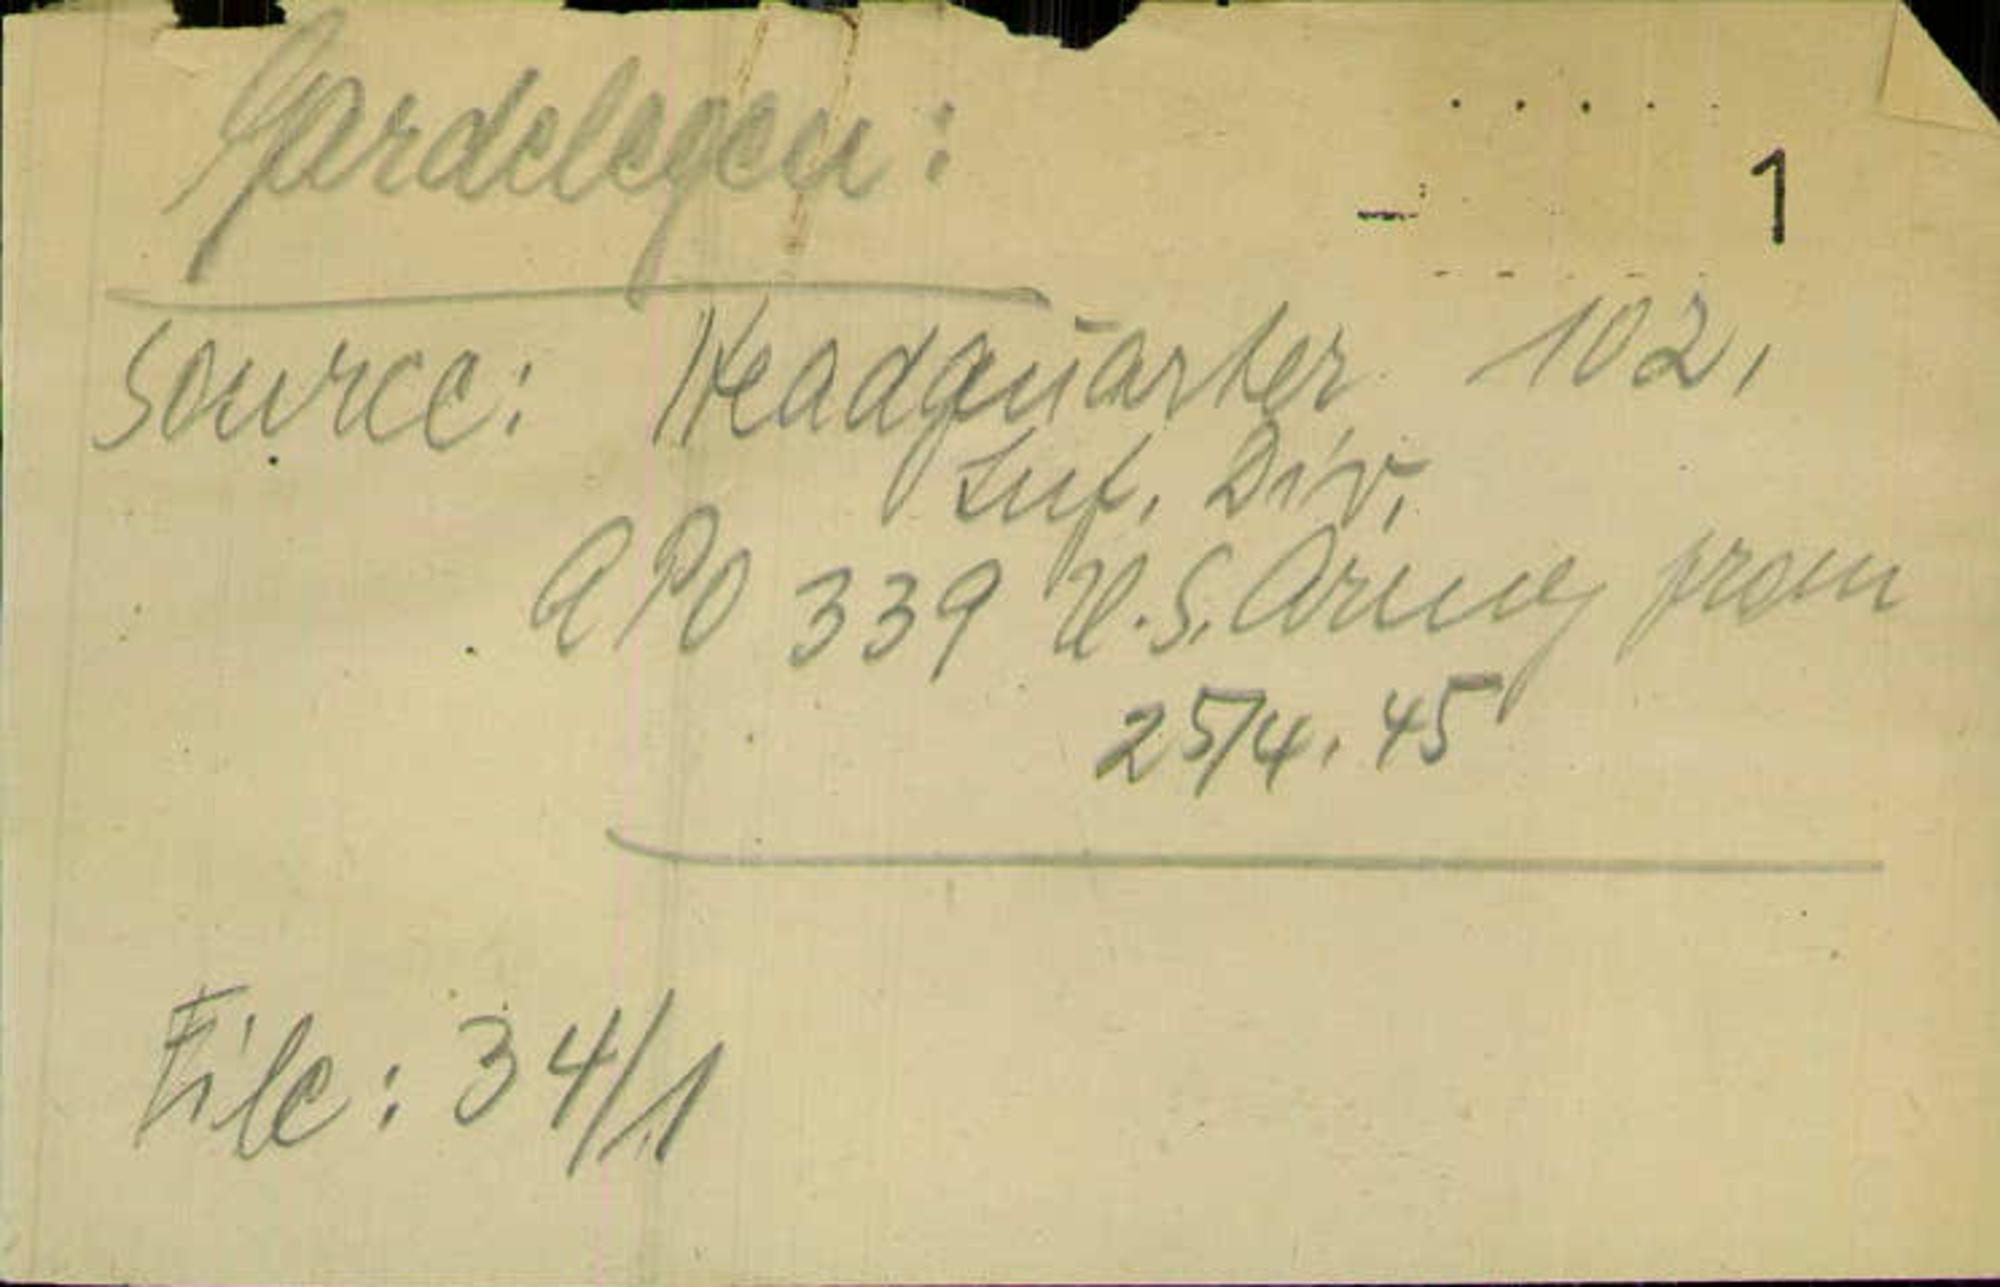 Gardelegen:
1
Source: Headquarter 102.
Inf. Div.
APO 339 U.S. Army from
25/4.45
File: 34/1